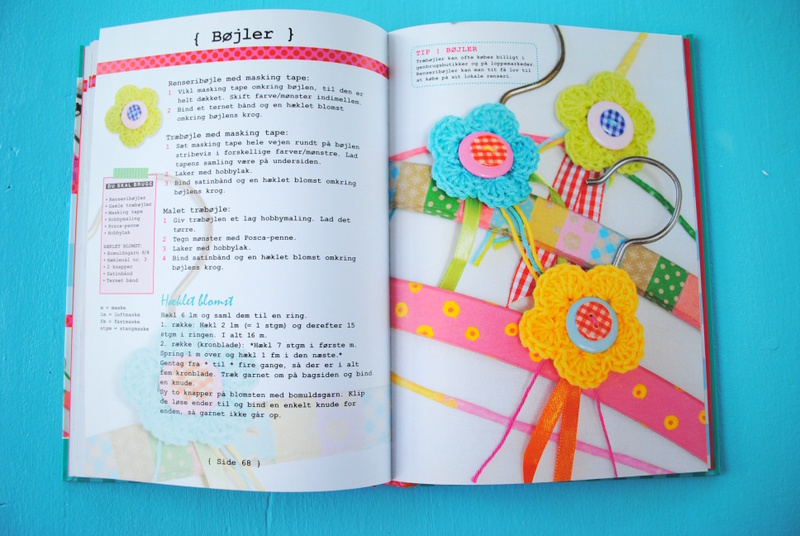 { Bøjler }
Renseribøjle med masking tape:
1 Vikl masking tape omkring bøjlen, til den er
helt dækket. Skift farve/mønster indimellem.
2 Bind et ternet bånd og en hæklet blomst
omkring bøjlens krog.
Træbøjle med masking tape:
1 Sæt masking tape hele vejen rundt på bøjlen
stribevis i forskellige farver/mønstre. Lad
tapens samling være på undersiden.
2 Laker med hobbylak.
3 Bind satinbånd og en hæklet blomst omkring
bøjlens krog.
Malet træbøjle:
1 Giv træbøjlen et lag hobbymaling. Lad det
tørre.
2 Tegn mønster med Posca-penne.
3 Laker med hobbylak.
4 Bind satinbånd og en hæklet blomst omkring
bøjlens krog.
DU SKAL BRUGE
• Renseribøjler
• Gamle træbøjler
• Masking tape
• Hobbymaling
• Posca-penne
• Hobbylak
HÆKLET BLOMST:
• Bomuldsgarn 8/4
• Hæklenål nr. 3
• 2 knapper
• Satinbånd
• Ternet bånd
m = maske
lm = luftmaske
fm = fastmaske
stgm = stangmaske
Hæklet blomst
Hækl 6 lm og saml dem til en ring.
1. række: Hækl 2 lm (= 1 stgm) og derefter 15
stgm i ringen. I alt 16 m.
2. række (kronblade): *Hækl 7 stgm i første m.
Spring 1 m over og hækl 1 fm i den næste.*
Gentag fra * til * fire gange, så der er i alt
fem kronblade. Træk garnet om på bagsiden og bind
en knude.
Sy to knapper på blomsten med bomuldsgarn. Klip
de løse ender til og bind en enkelt knude for
enden, så garnet ikke går op.
{ Side 68 }
TIP | BØJLER
Træbøjler kan ofte købes billigt i
genbrugsbutikker og på loppemarkeder.
Renseribøjler kan man tit få lov til
at købe på sit lokale renseri.